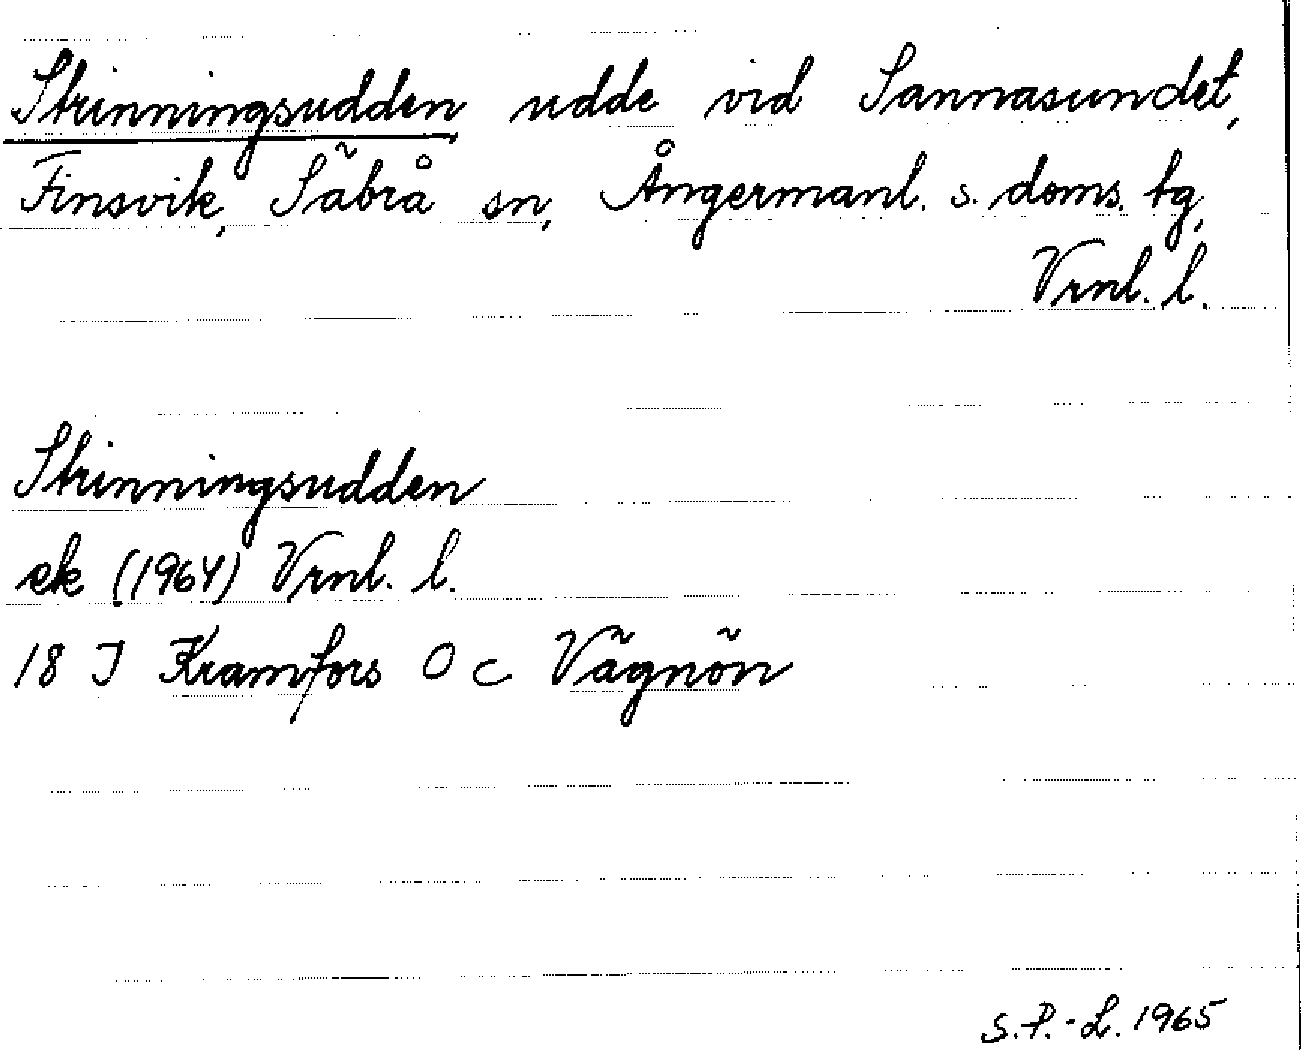 Strinningsudden udde vid Sannasundet,
Finsvik, Säbrå sn, Ångermanl. s. doms. tg,
Vrnl. l.
Strinningsudden
ek (1964) Vrnl. l.
18 I Kramfors O c Vägnön
S.P.-L. 1965